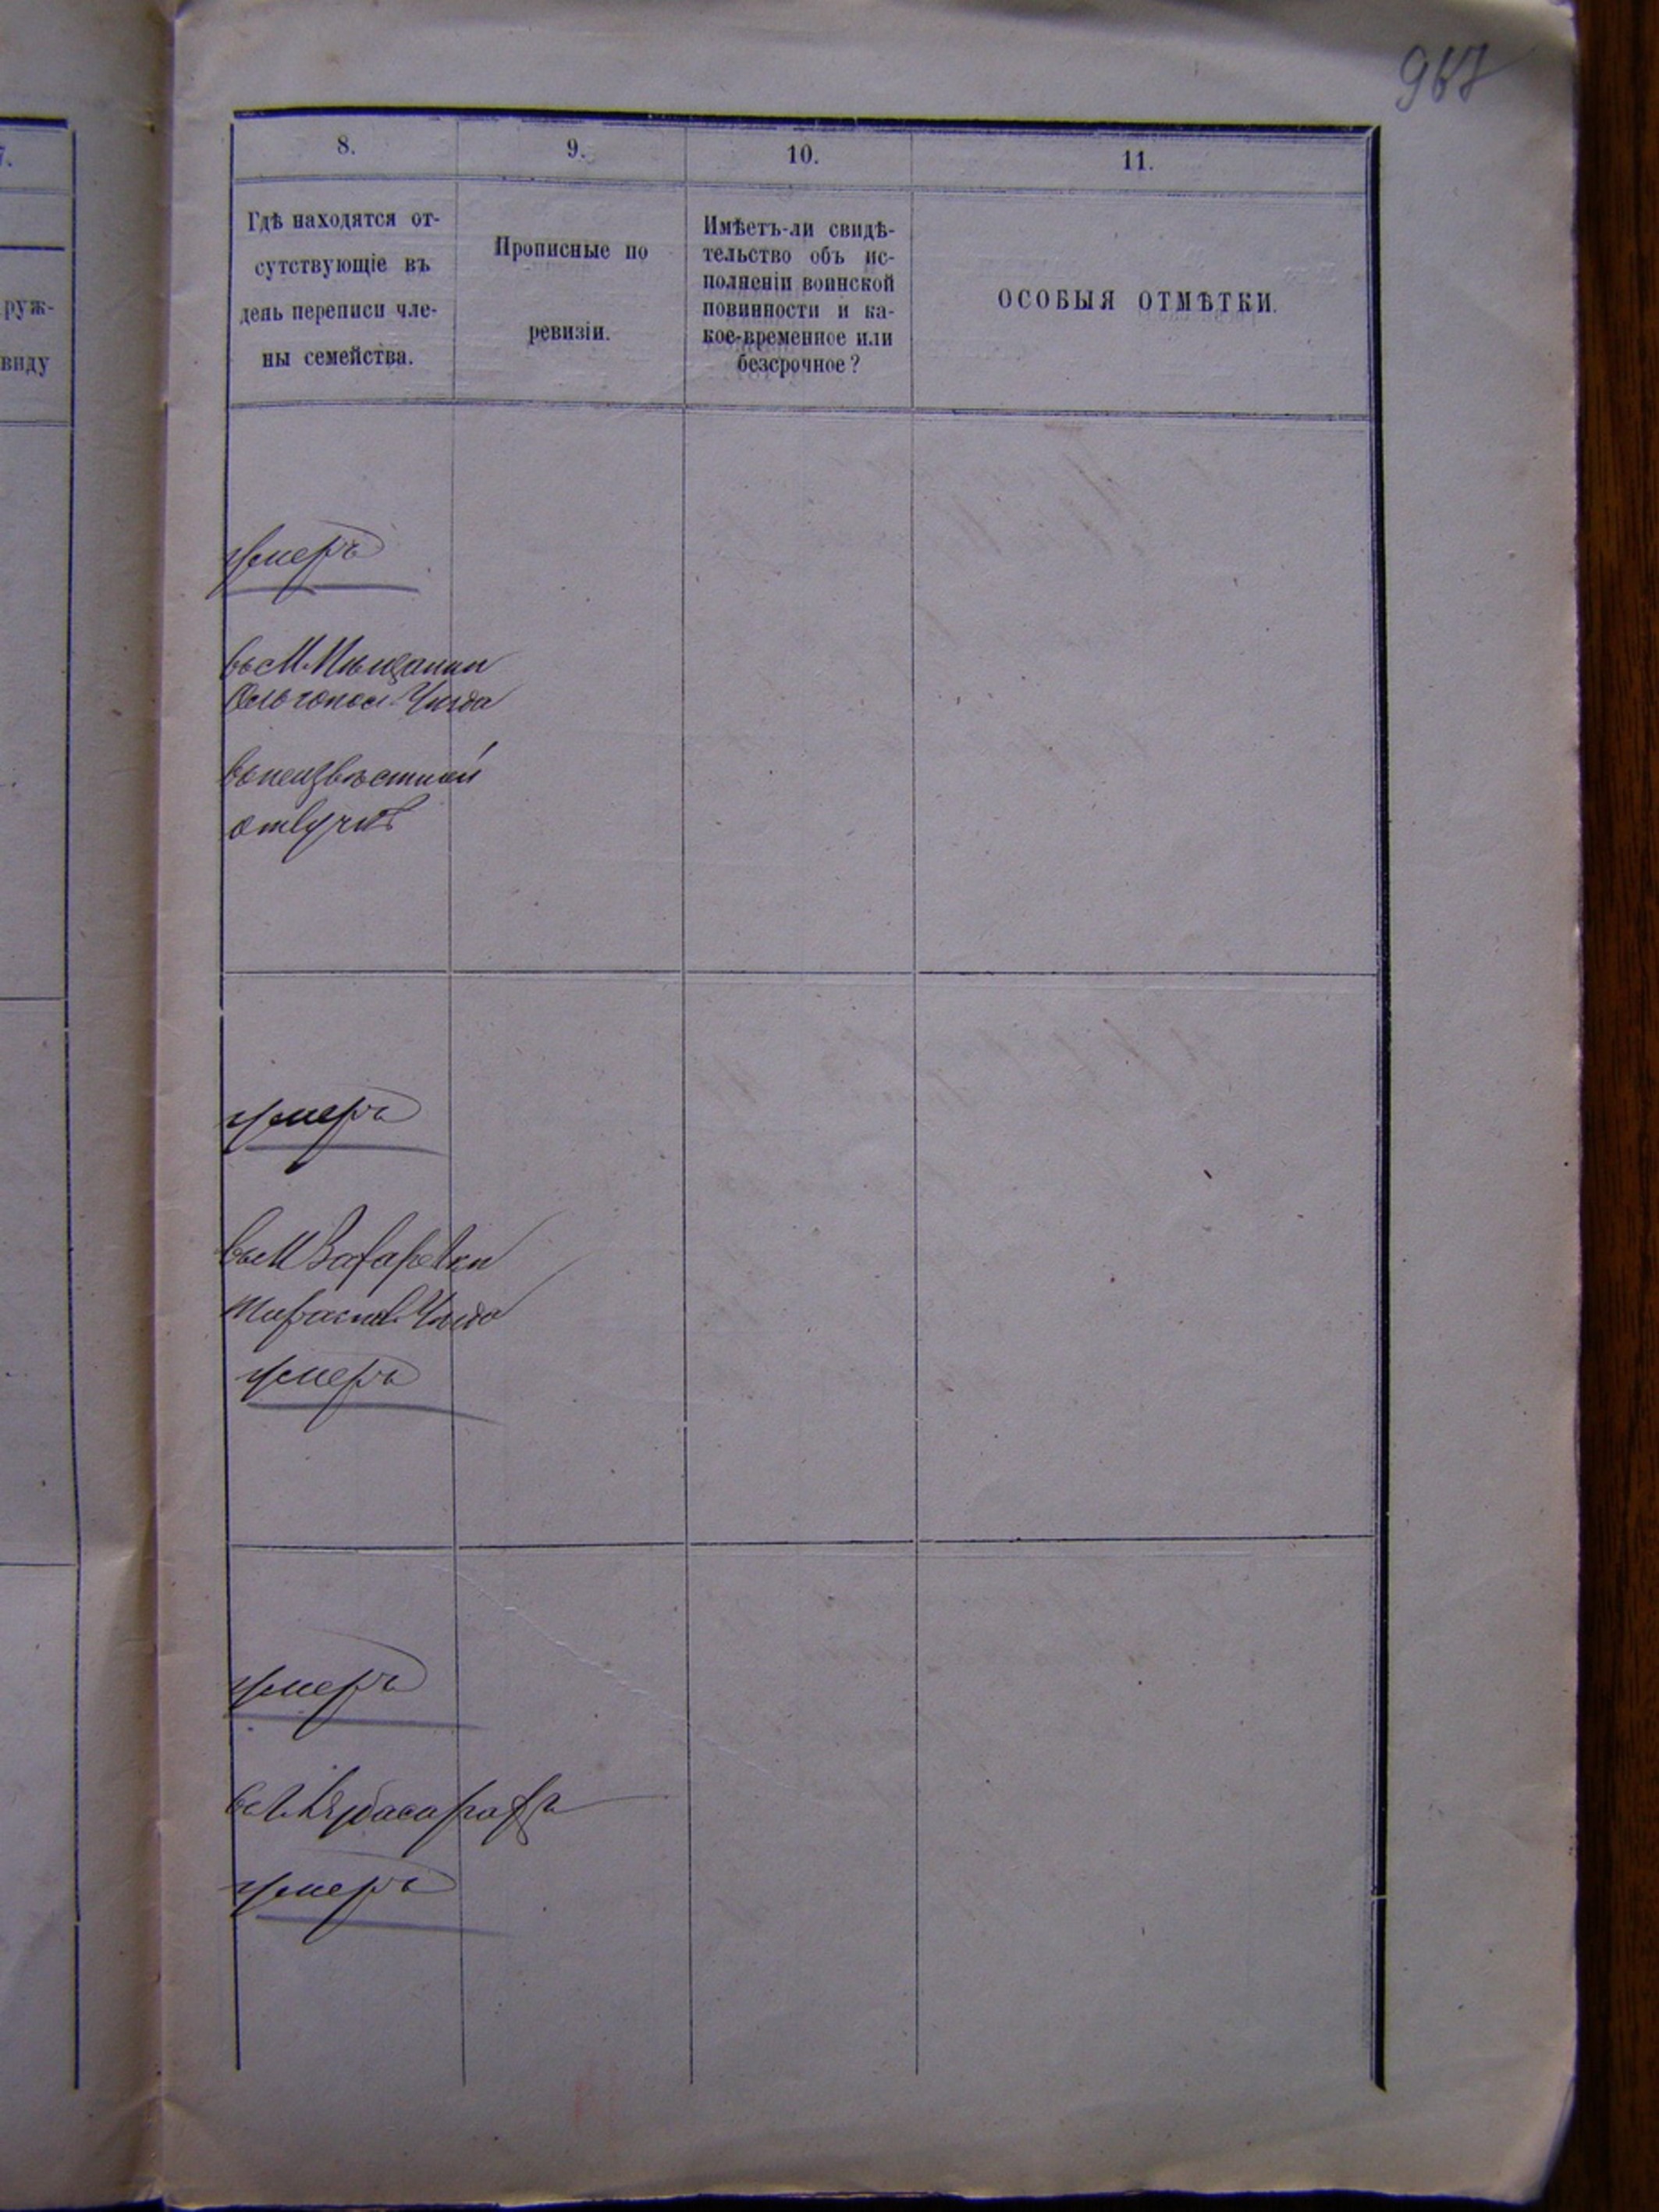 967
7.
руж-
виду
8.
9.
10.
11.
Гдѣ находятся от-
сутствующіе въ
день переписи чле-
ны семейства.
Прописные по
ревизіи.
Имѣетъ-ли свидѣ-
тельство объ ис-
полненіи воинской
повинности и ка-
кое-временное или
безсрочное?
ОСОБЫЯ ОТМѢТКИ.
умеръ
въ М.
Ольгопол. Уѣзда
въ неизвѣстной
отлучкѣ
умеръ
въ М Захаревки
Тираспол. Уѣзда
умеръ
умеръ
умеръ